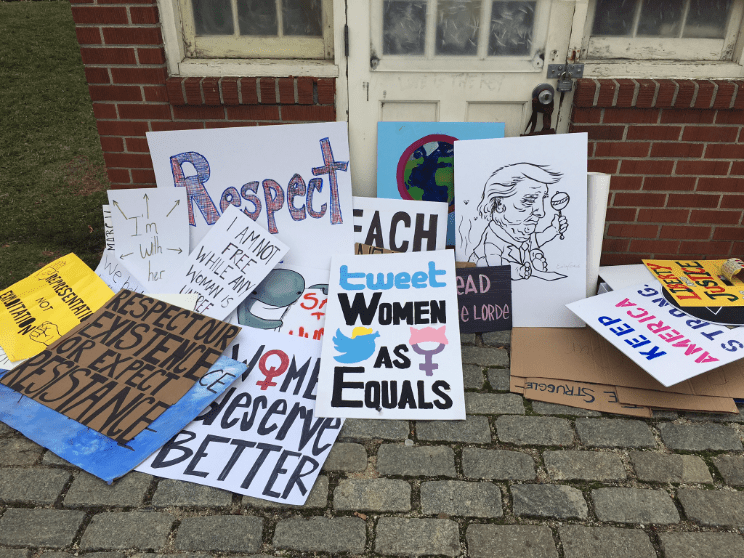 Respect
EACH
MARCH
I'm
With
her
I AM NOT
FREE
WHILE ANY
WOMAN IS
UNFREE
REPRESENTATION
NOT
RESPECT OUR
EXISTENCE
OR EXPECT
RESISTANCE
WOMEN
Deserve
BETTER
tweet
WOMEN
AS
EQUALS
EAD
E LORDE
STRUGGLE
KEEP
AMERICA
STRONG
LIBERTY
JUSTICE